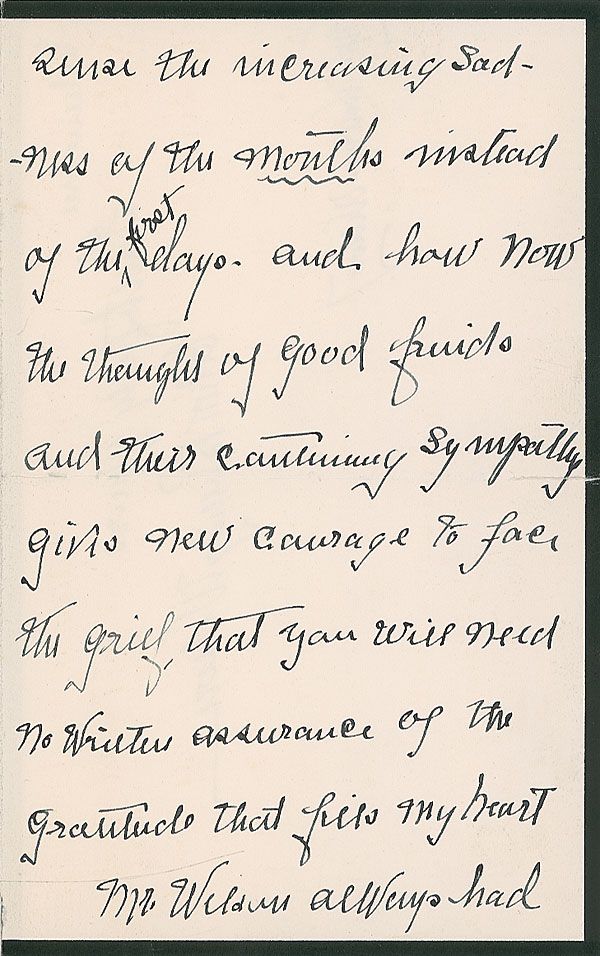 sense the increasing sad-
-ness of the months instead
of the first days - and how now
the thought of good friends
and their continuing sympathy
gives new courage to face
the grief, that you will need
no written assurance of the
gratitude that fills my heart
Mr. Wilson always had